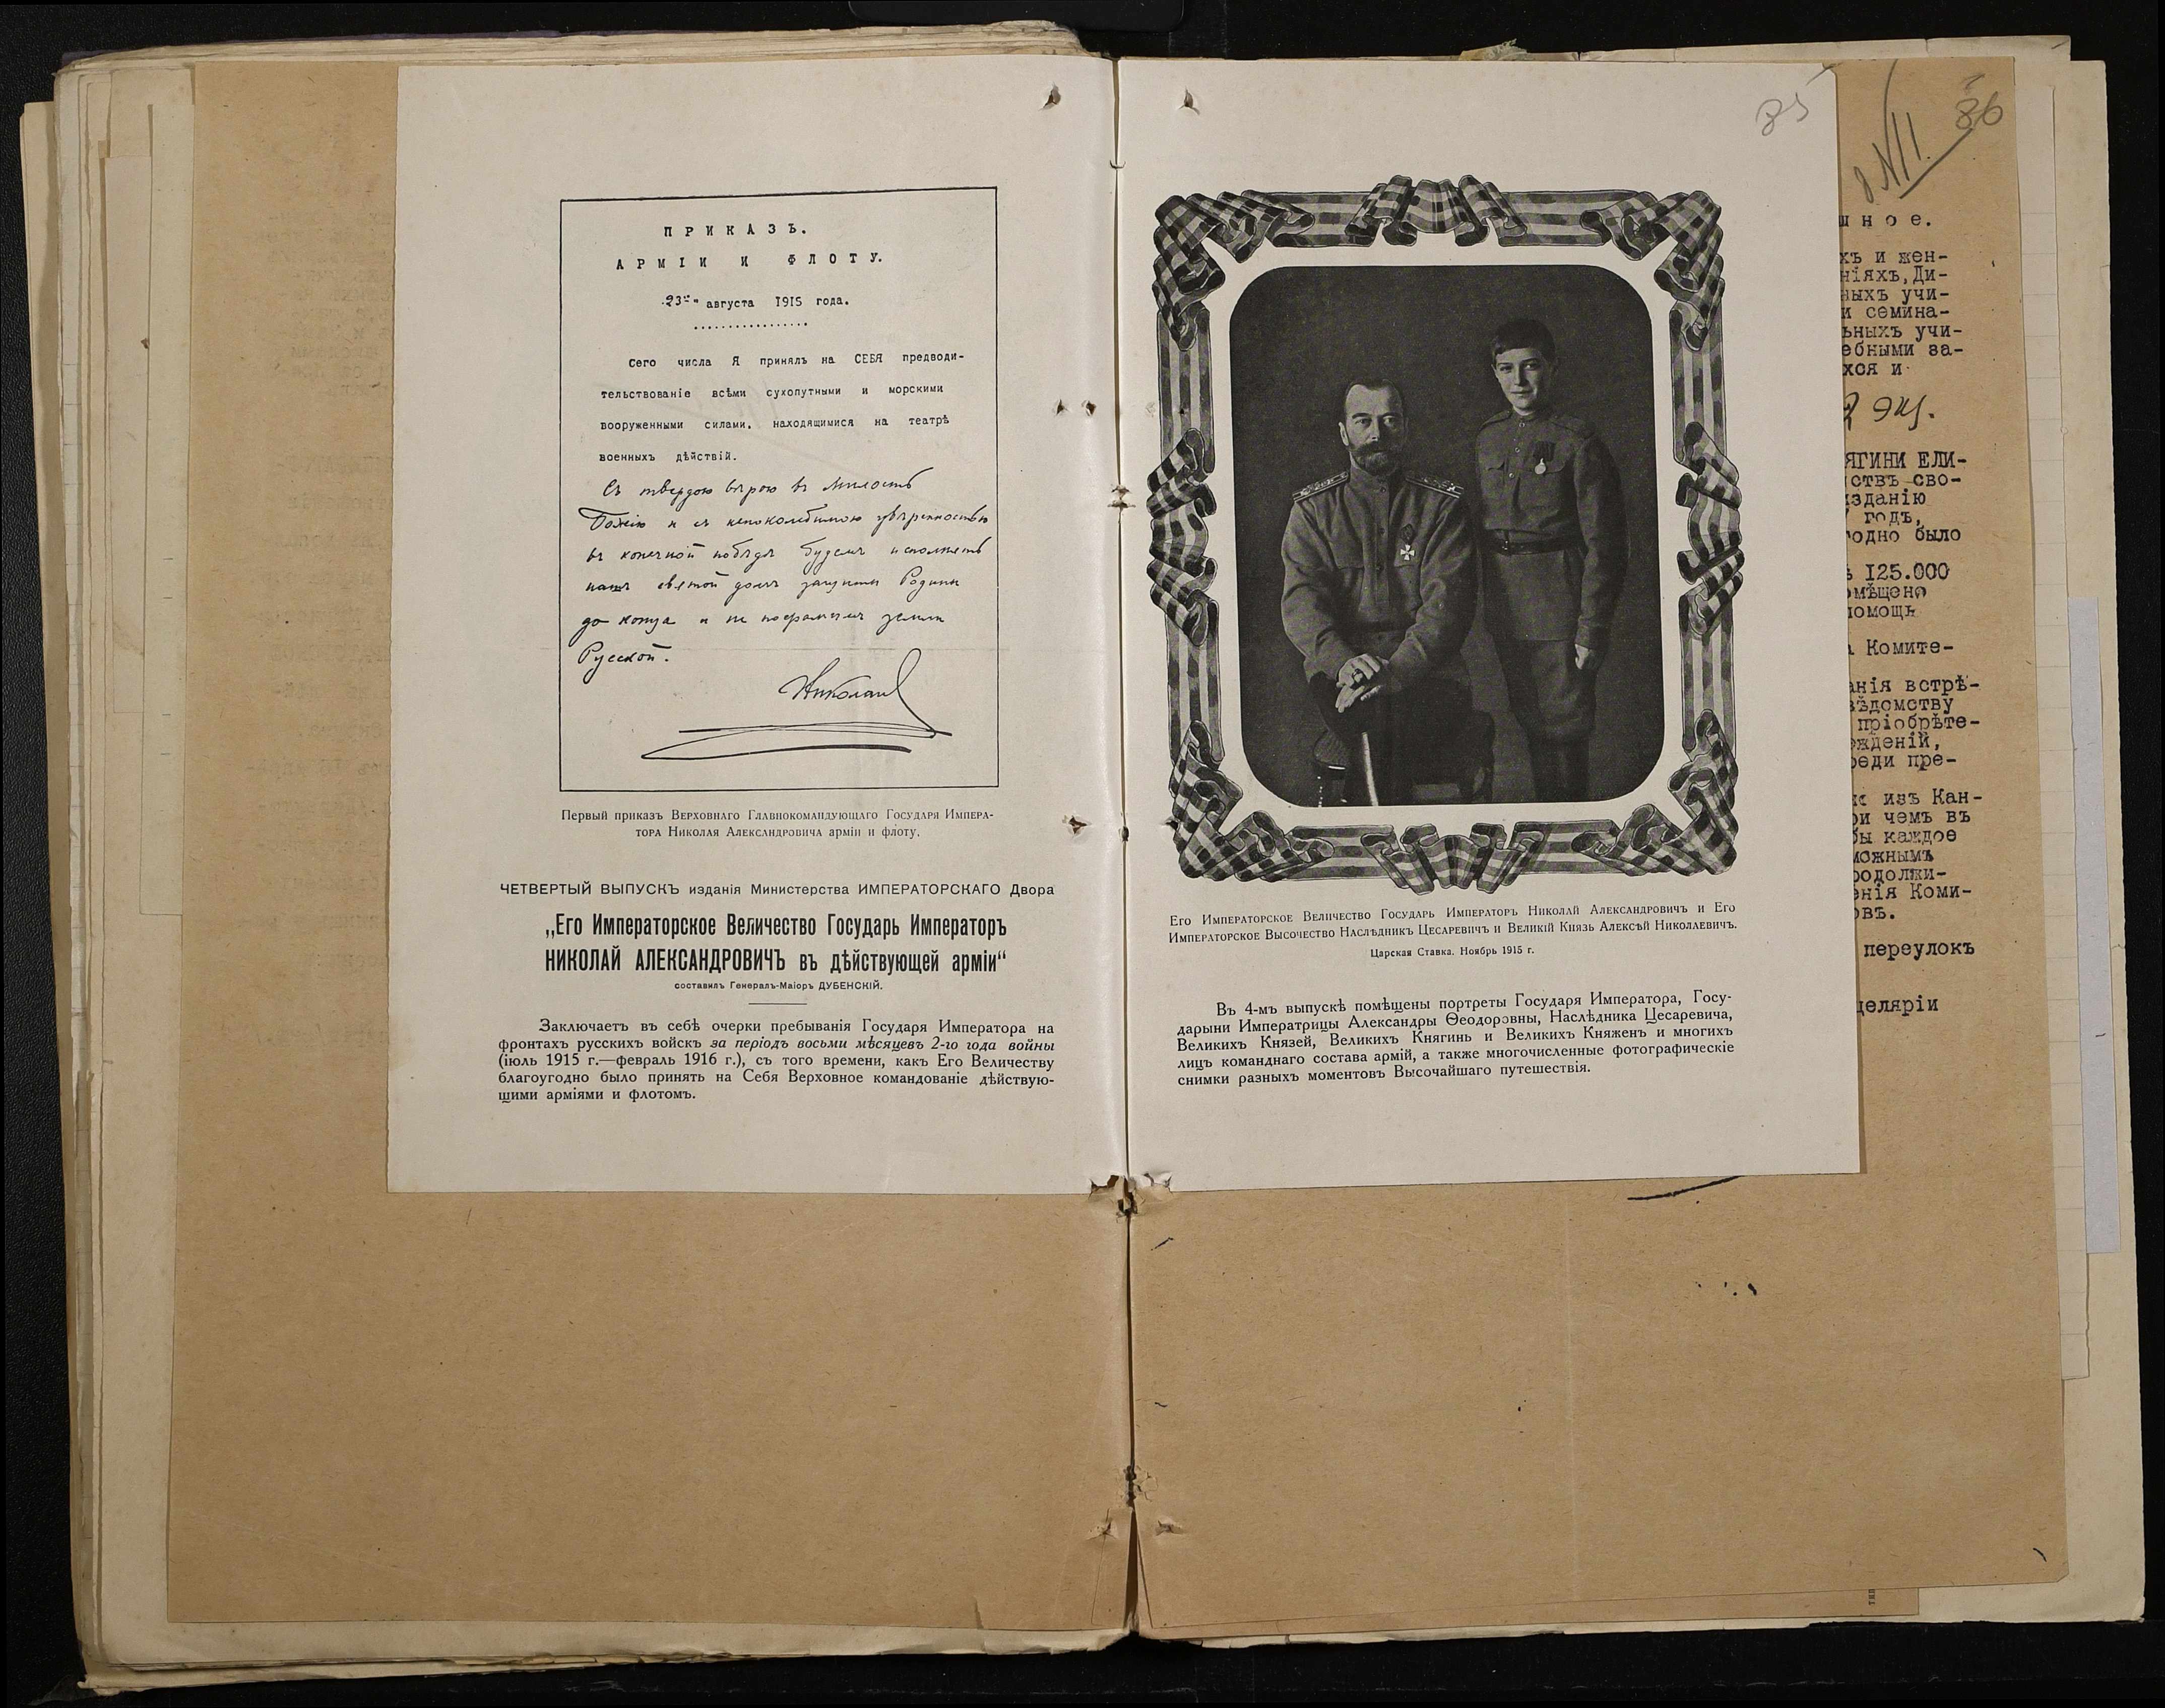 ПРИКАЗЪ.
АРМІИ И ФЛОТУ.
23го августа 1915 года.
Сего числа Я принялъ на СЕБЯ предводи-
тельствованіе всѣми сухопутными и морскими
вооруженными силами, находящимися на театрѣ
военныхъ дѣйствій.
Съ твердою вѣрою въ милость
Божію и съ непоколебимою увѣренностью
въ конечной побѣдѣ будемъ исполнять
нашъ святой долгъ защиты Родины
до конца и не посрамимъ земли
Русской.
Николай
Первый приказъ Верховнаго Главнокомандующаго Государя Импера-
тора Николая Александровича арміи и флоту.
ЧЕТВЕРТЫЙ ВЫПУСКЪ изданія Министерства ИМПЕРАТОРСКАГО Двора
„Его Императорское Величество Государь Императоръ
НИКОЛАЙ АЛЕКСАНДРОВИЧЪ въ дѣйствующей арміи“
составилъ Генералъ-Маіоръ ДУБЕНСКІЙ.
Заключаетъ въ себѣ очерки пребыванія Государя Императора на
фронтахъ русскихъ войскъ за періодъ восьми мѣсяцевъ 2-го года войны
(іюль 1915 г.—февраль 1916 г.), съ того времени, какъ Его Величеству
благоугодно было принять на Себя Верховное командованіе дѣйствую-
щими арміями и флотомъ.
85
Его Императорское Величество Государь Императоръ Николай Александровичъ и Его
Императорское Высочество Наслѣдникъ Цесаревичъ и Великій Князь Алексѣй Николаевичъ.
Царская Ставка. Ноябрь 1915 г.
Въ 4-мъ выпускѣ помѣщены портреты Государя Императора, Госу-
дарыни Императрицы Александры Ѳеодоровны, Наслѣдника Цесаревича,
Великихъ Князей, Великихъ Княгинь и Великихъ Княженъ и многихъ
лицъ команднаго состава армій, а также многочисленные фотографическіе
снимки разныхъ моментовъ Высочайшаго путешествія.
86
N11.
шное.
хъ и жен-
ніяхъ, Ди-
ныхъ учи-
и семина-
ьныхъ учи-
ебными за-
хся и
экз.
ЯГИНИ ЕЛИ-
ствъ сво-
изданію
годъ,
годно было
125.000
мѣщено
помощь
Комите-
анія встрѣ-
вѣдомству
пріобрѣте-
ожденій,
реди пре-
изъ Кан-
ри чемъ въ
бы каждое
можнымъ
родолжи-
енія Коми-
овъ.
переулокъ
целяріи